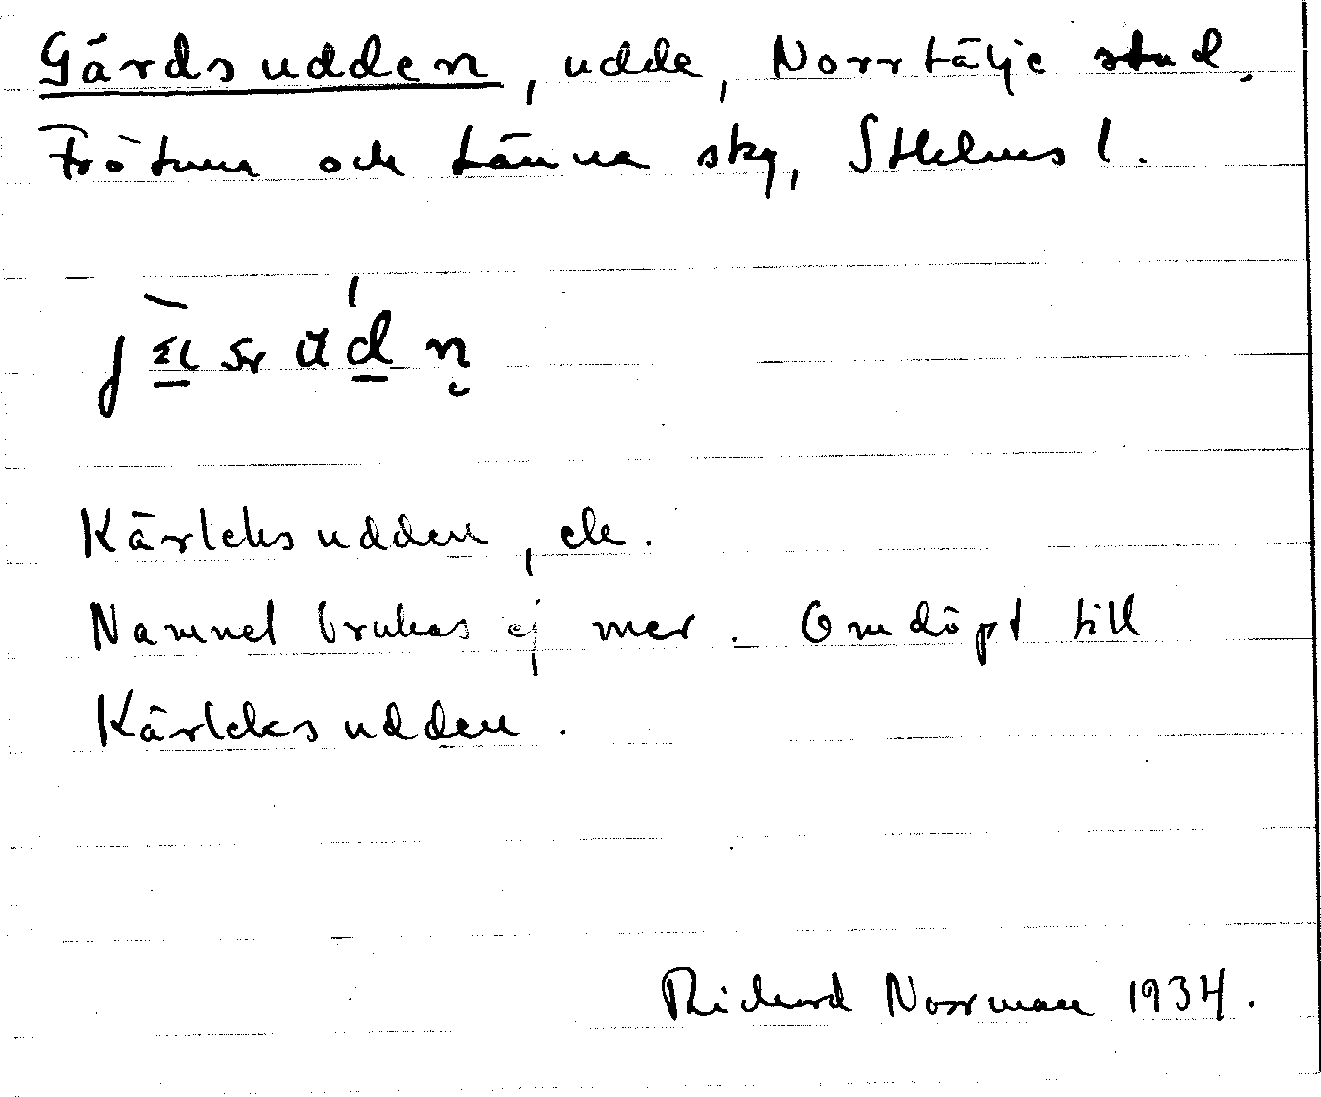 Gärdsudden, udde, Norrtälje stad.
Frötuna och Länna skg, Sthlms l.
Kärleksudden, dk.
Namnet brukas ej mer. Omdöpt till
Kärleksudden.
Richard Norrman 1934.